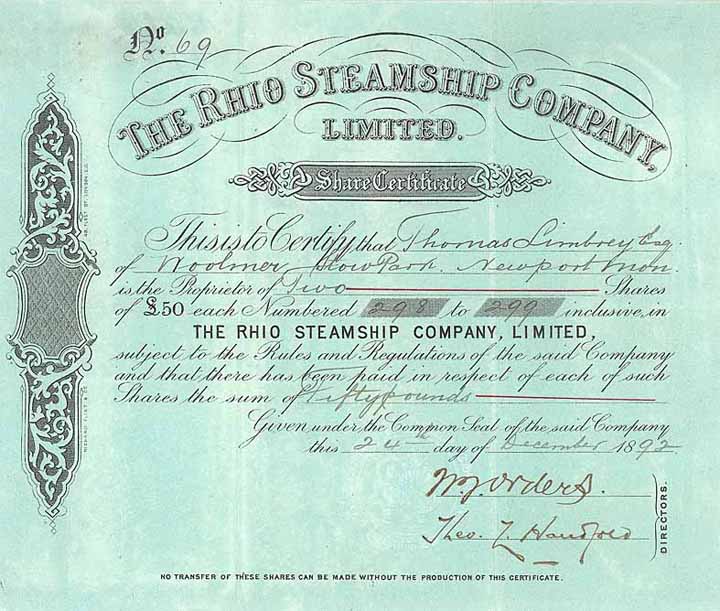 No. 69
THE RHIO STEAMSHIP COMPANY,
LIMITED.
Share Certificate
This is to Certify that Thomas Limbrey Esq.
of Woolmer Stow Park. Newport Mon
is the Proprietor of Two Shares
of £50 each Numbered 298 to 299 inclusive, in
THE RHIO STEAMSHIP COMPANY, LIMITED,
subject to the Rules and Regulations of the said Company
and that there has been paid in respect of each of such
Shares the sum of Fifty pounds
Given under the Common Seal of the said Company
this 24th day of December 1892
Theo.
DIRECTORS.
NO TRANSFER OF THESE SHARES CAN BE MADE WITHOUT THE PRODUCTION OF THIS CERTIFICATE.